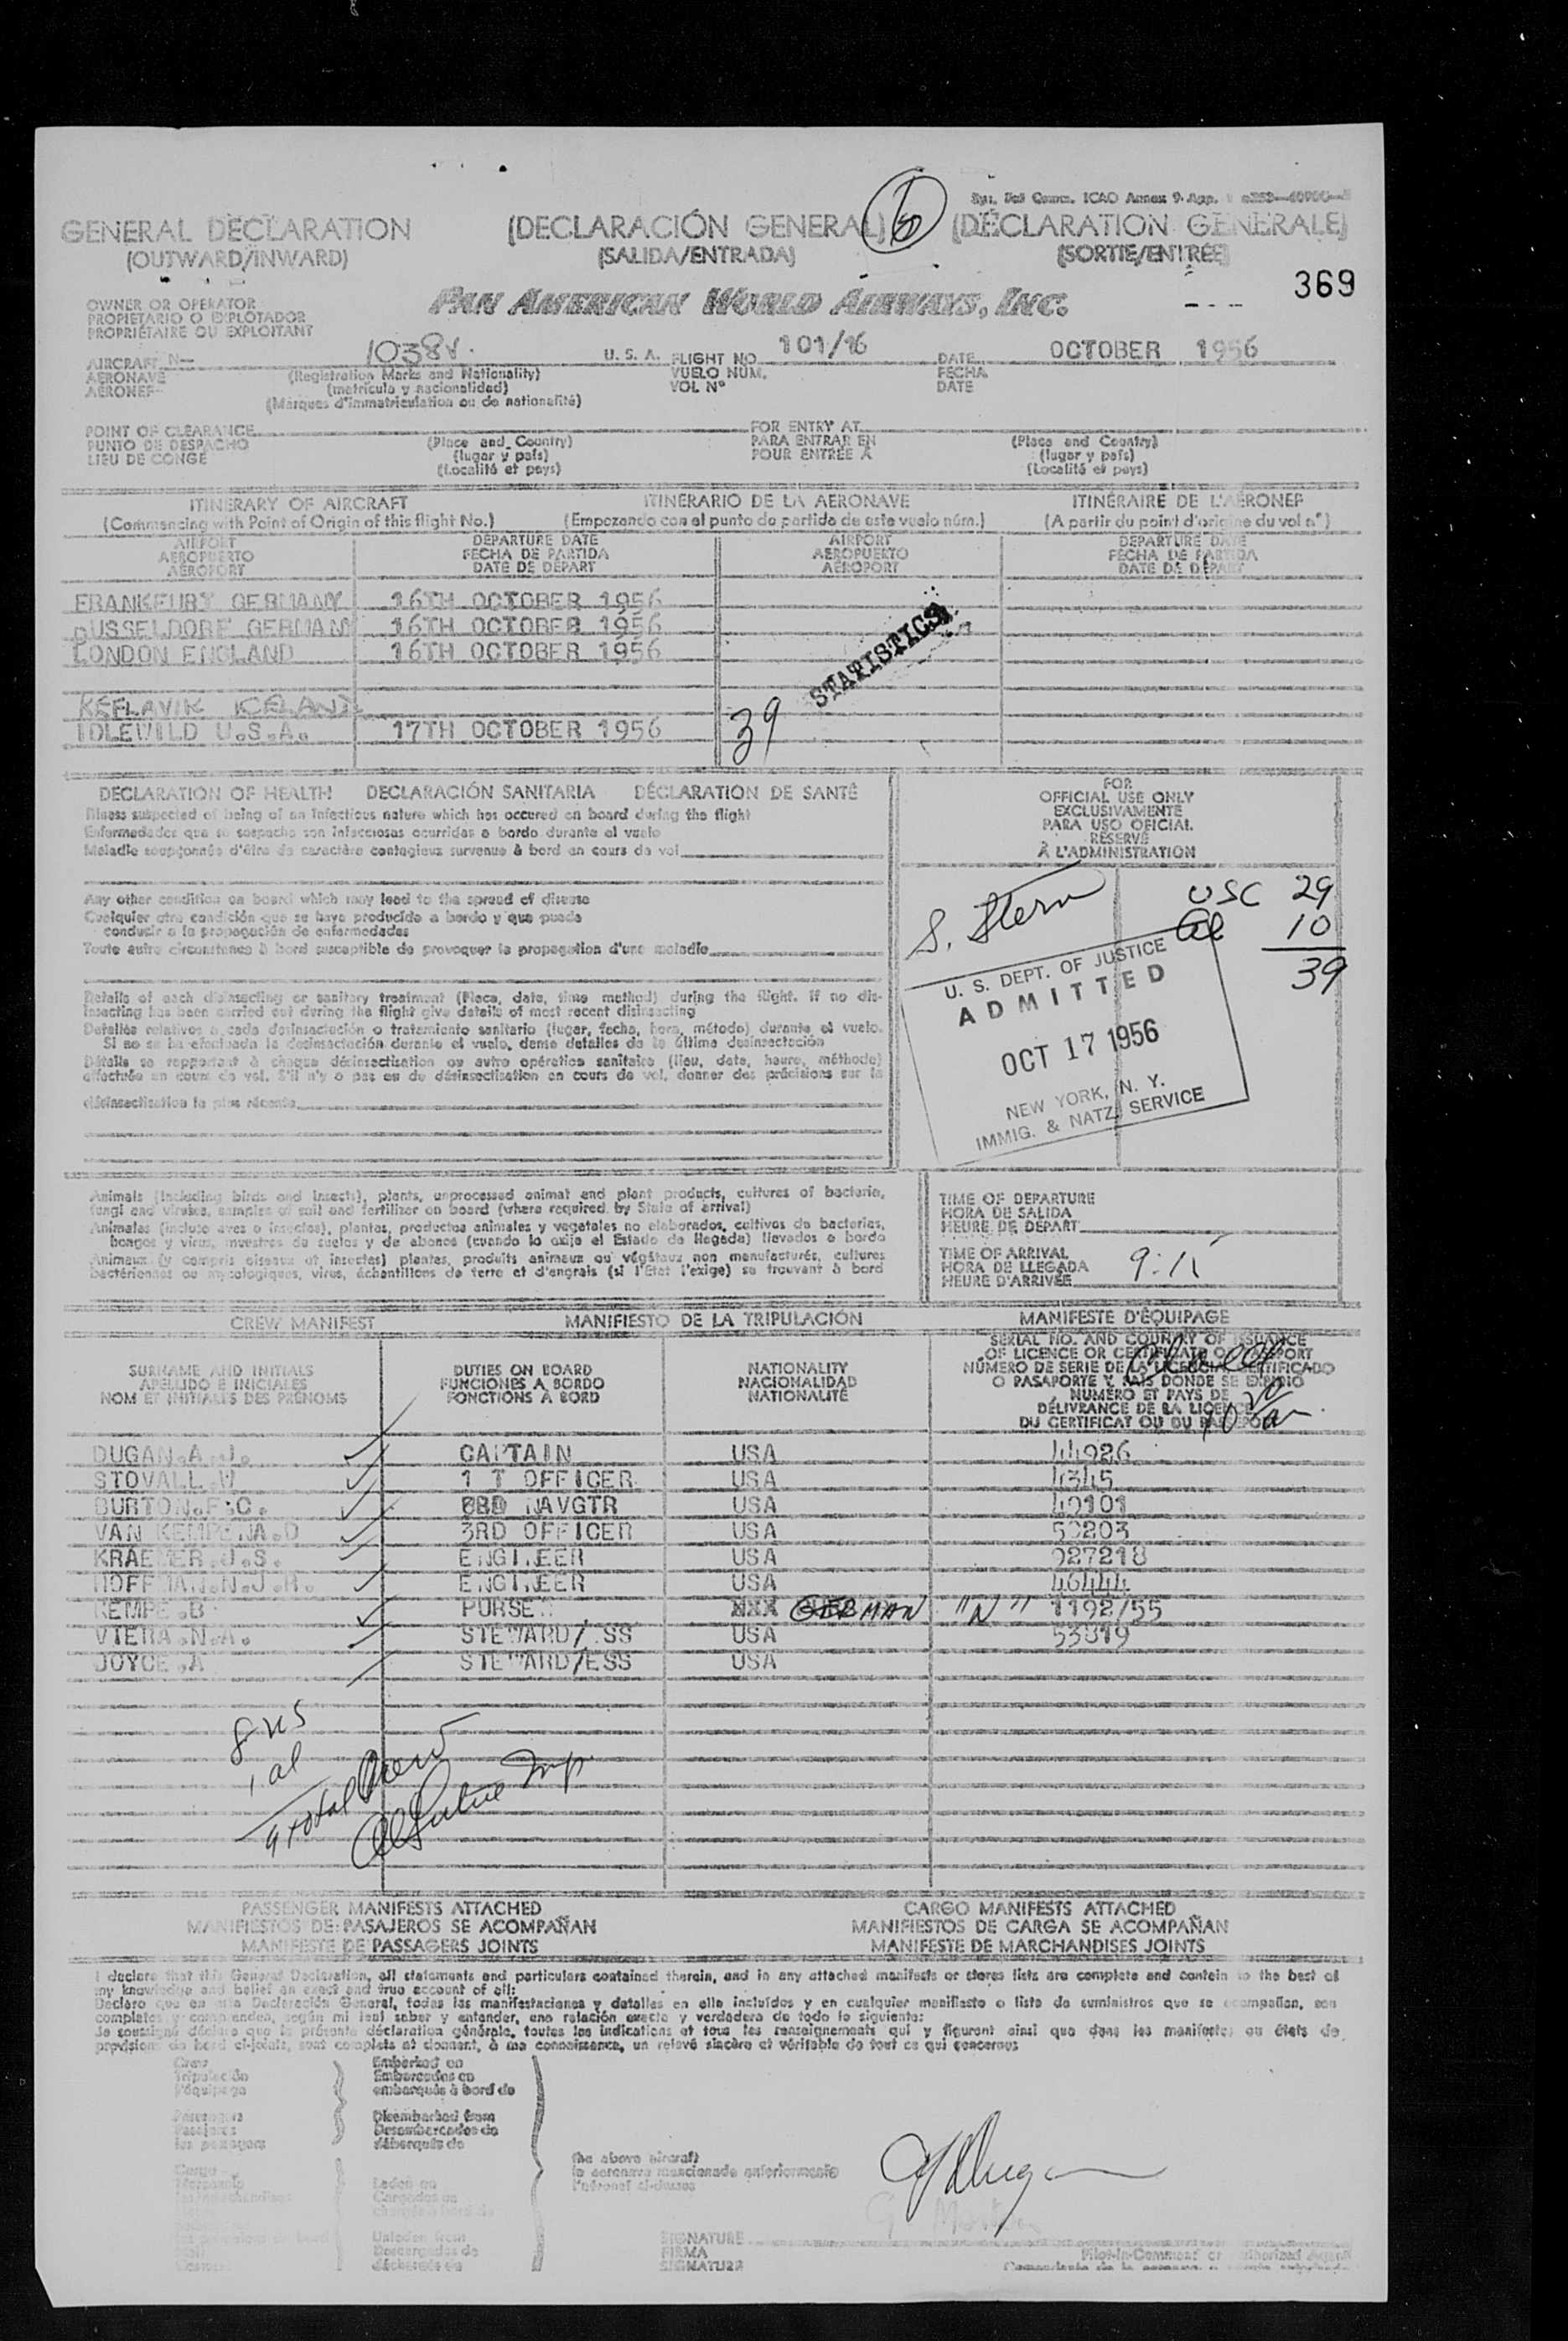 GENERAL DECLARATION (DECLARACIÓN GENERAL) (DÉCLARATION GÉNÉRALE)
(OUTWARD/INWARD) (SALIDA/ENTRADA) (SORTIE/ENTRÉE)
369
OWNER OR OPERATOR
PROPIETARIO O EXPLOTADOR
PROPRIÉTAIRE OU EXPLOITANT
PAN AMERICAN WORLD AIRWAYS, INC.
AIRCRAFT N— 1038V. U. S. A. FLIGHT NO. 101/16 DATE OCTOBER 1956
AERONAVE (Registration Marks and Nationality) VUELO NÚM. FECHA
AÉRONEF (matrícula y nacionalidad) VOL Nº DATE
(Marques d'immatriculation ou de nationalité)
POINT OF CLEARANCE FOR ENTRY AT
PUNTO DE DESPACHO (Place and Country) PARA ENTRAR EN (Place and Country)
LIEU DE CONGÉ (lugar y país) POUR ENTRÉE À (lugar y país)
(Localité et pays) (Localité et pays)
ITINERARY OF AIRCRAFT ITINERARIO DE LA AERONAVE ITINÉRAIRE DE L'AÉRONEF
(Commencing with Point of Origin of this flight No.) (Empezando con el punto de partida de este vuelo núm.) (A partir du point d'origine du vol nº)
AIRPORT DEPARTURE DATE AIRPORT DEPARTURE DATE
AEROPUERTO FECHA DE PARTIDA AEROPUERTO FECHA DE PARTIDA
AÉROPORT DATE DE DÉPART AÉROPORT DATE DE DÉPART
FRANKFURT GERMANY 16TH OCTOBER 1956
DUSSELDORF GERMAN 16TH OCTOBER 1956
LONDON ENGLAND 16TH OCTOBER 1956
STATISTICS
KEFLAVIK ICELAND
IDLEWILD U.S.A. 17TH OCTOBER 1956 39
DECLARATION OF HEALTH DECLARACIÓN SANITARIA DÉCLARATION DE SANTÉ
Illness suspected of being of an infectious nature which has occured on board during the flight
Enfermedades que se sospecha son infecciosas ocurridas a bordo durante el vuelo
Maladie soupçonnée d'être de caractère contagieux survenue à bord en cours de vol
Any other condition on board which may lead to the spread of disease
Cualquier otra condición que se haya producido a bordo y que pueda
conducir a la propagación de enfermedades
Toute autre circonstance à bord susceptible de provoquer la propagation d'une maladie
Details of each disinsecting or sanitary treatment (Place, date, time method) during the flight. If no dis-
insecting has been carried out during the flight give details of most recent disinsecting
Detalles relativos a cada desinsectación o tratamiento sanitario (lugar, fecha, hora, método) durante el vuelo.
Si no se ha efectuado la desinsectación durante el vuelo, dense detalles de la última desinsectación
Détails se rapportant à chaque désinsectisation ou autre opération sanitaire (lieu, date, heure, méthode)
effectuée en cours de vol. S'il n'y a pas eu de désinsectisation en cours de vol, donner des précisions sur la
désinsectisation la plus récente
FOR
OFFICIAL USE ONLY
EXCLUSIVAMENTE
PARA USO OFICIAL
RÉSERVÉ
À L'ADMINISTRATION
S. Stern
USC 29
al 10
39
U. S. DEPT. OF JUSTICE
ADMITTED
OCT 17 1956
NEW YORK, N. Y.
IMMIG. & NATZ. SERVICE
Animals (including birds and insects), plants, unprocessed animal and plant products, cultures of bacteria,
fungi and viruses, samples of soil and fertilizer on board (where required by State of arrival)
Animales (incluso aves o insectos), plantas, productos animales y vegetales no elaborados, cultivos de bacterias,
hongos y virus, muestras de suelos y de abonos (cuando lo exija el Estado de llegada) llevados a bordo
Animaux (y compris oiseaux et insectes) plantes, produits animaux ou végétaux non manufacturés, cultures
bactériennes ou mycologiques, virus, échantillons de terre et d'engrais (si l'État l'exige) se trouvant à bord
TIME OF DEPARTURE
HORA DE SALIDA
HEURE DE DÉPART
TIME OF ARRIVAL
HORA DE LLEGADA
HEURE D'ARRIVÉE
CREW MANIFEST MANIFIESTO DE LA TRIPULACIÓN MANIFESTE D'ÉQUIPAGE
SURNAME AND INITIALS DUTIES ON BOARD NATIONALITY
APELLIDO E INICIALES FUNCIONES A BORDO NACIONALIDAD
NOM ET INITIALES DES PRÉNOMS FONCTIONS À BORD NATIONALITÉ
SERIAL NO. AND COUNTRY OF ISSUANCE
OF LICENCE OR CERTIFICATE OR PASSPORT
NÚMERO DE SERIE DE LA LICENCIA CERTIFICADO
O PASAPORTE Y PAÍS DONDE SE EXPIDIÓ
NUMÉRO ET PAYS DE
DÉLIVRANCE DE LA LICENCE
DU CERTIFICAT OU DU PASSEPORT
DUGAN.A.J. CAPTAIN USA 44926
STOVALL.W 1 T OFFICER USA 4345
BURTON.F.C. NAVGTR USA 49101
VAN KEMPENA.D 3RD OFFICER USA 50203
KRAEMER.J.S. ENGINEER USA 927218
HOFFMAN.N.J.H. ENGINEER USA 46444
KEMPE.B PURSE XXX GERMAN "N" 1192/55
VIERA.N.A. STEWARD/ SS USA 53819
JOYCE.A STEWARD/ESS USA
8 us
1 al
9 total Crew
PASSENGER MANIFESTS ATTACHED CARGO MANIFESTS ATTACHED
MANIFIESTOS DE PASAJEROS SE ACOMPAÑAN MANIFIESTOS DE CARGA SE ACOMPAÑAN
MANIFESTE DE PASSAGERS JOINTS MANIFESTE DE MARCHANDISES JOINTS
I declare that this General Declaration, all statements and particulars contained therein, and in any attached manifests or stores lists are complete and contain to the best of
my knowledge and belief an exact and true account of all:
Declaro que en esta Declaración General, todas las manifestaciones y detalles en ella incluídos y en cualquier manifiesto o lista de suministros que se acompañan, son
completos y comprenden, según mi leal saber y entender, una relación exacta y verdadera de todo lo siguiente:
Je soussigné déclare que la présente déclaration générale, toutes les indications et tous les renseignements qui y figurent ainsi que dans les manifestes ou états de
provisions de bord ci-joints, sont complets et donnent, à ma connaissance, un relevé sincère et véritable de tout ce qui concerne:
Crew Embarked on
Tripulación Embarcados en
l'équipage embarqués à bord de
Passengers Disembarked from
Pasajeros Desembarcados de
les passagers débarqués de
the above aircraft
la aeronave mencionada anteriormente
l'aéronef ci-dessus
Cargo Laden on
Cargados en
Unladen from
Descargados de
déchargés de
AJ Dugan
SIGNATURE
FIRMA
SIGNATURE
Pilot-in-Command or Authorized Agent